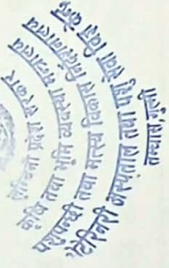 लुम्बिनी प्रदेश सरकार
कृषि तथा भूमि व्यवस्था मन्त्रालय
पशुपन्छी तथा मत्स्य विकास निर्देशनालय
भेटेरिनरी अस्पताल तथा पशु सेवा विज्ञ केन्द्र
तम्घास, गुल्मी